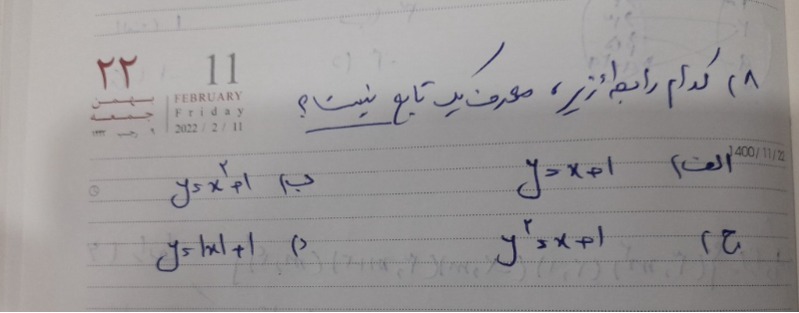 ۲۲ بهمن جمعه
11 FEBRUARY Friday 2022 / 2 / 11
۸) کدام رابطهٔ زیر، معرف یک تابع نیست؟
1400/11/22
الف) y=x+1
ب) y=x²+1
ج) y²=x+1
د) y=|x|+1